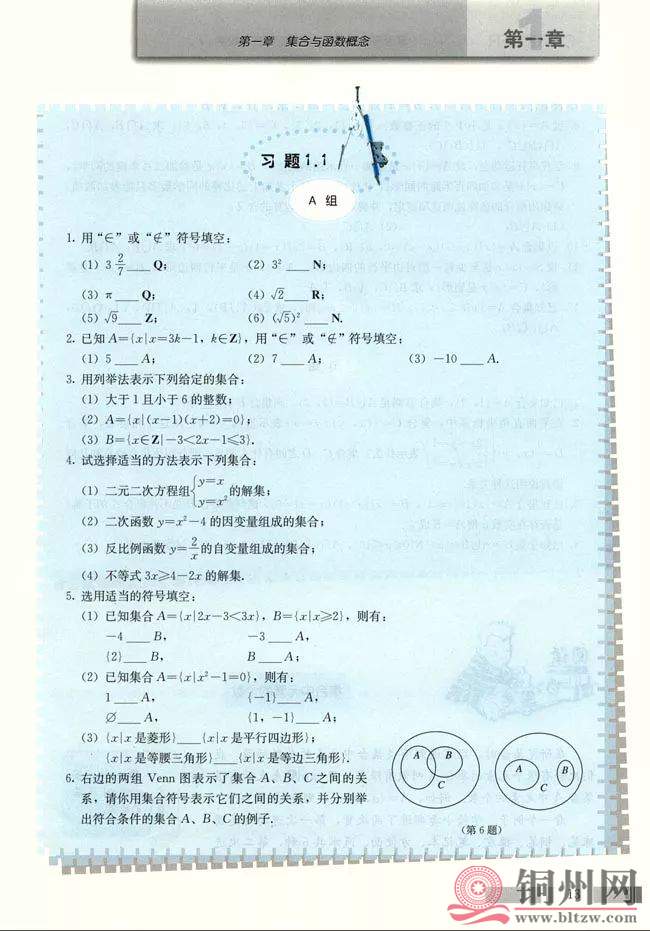 第一章 集合与函数概念
第一章
习题1.1
A 组
1. 用“∈”或“∉”符号填空：
（1）3 2/7 ____ Q； （2）3² ____ N；
（3）π ____ Q； （4）√2 ____ R；
（5）√9 ____ Z； （6）(√5)² ____ N.
2. 已知 A={x|x=3k-1，k∈Z}，用“∈”或“∉”符号填空：
（1）5 ____ A； （2）7 ____ A； （3）-10 ____ A.
3. 用列举法表示下列给定的集合：
（1）大于 1 且小于 6 的整数；
（2）A={x|(x-1)(x+2)=0}；
（3）B={x∈Z|-3<2x-1≤3}.
4. 试选择适当的方法表示下列集合：
（1）二元二次方程组{y=x y=x²的解集；
（2）二次函数 y=x²-4 的因变量组成的集合；
（3）反比例函数 y=2/x的自变量组成的集合；
（4）不等式 3x≥4-2x 的解集.
5. 选用适当的符号填空：
（1）已知集合 A={x|2x-3<3x}，B={x|x≥2}，则有：
-4 ____ B， -3 ____ A，
{2} ____ B， B ____ A；
（2）已知集合 A={x|x²-1=0}，则有：
1 ____ A， {-1} ____ A，
∅ ____ A， {1，-1} ____ A；
（3）{x|x是菱形} ____ {x|x是平行四边形}；
{x|x是等腰三角形} ____ {x|x是等边三角形}.
6. 右边的两组 Venn 图表示了集合 A、B、C 之间的关
系，请你用集合符号表示它们之间的关系，并分别举
出符合条件的集合 A、B、C 的例子.
A B C
A B C
（第 6 题）
13
铜州网
www.bltzw.com